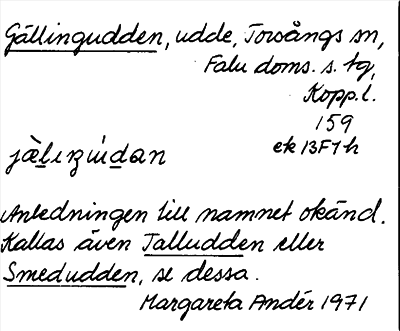 Gällingudden, udde, Torsångs sn,
Falu doms. s. tg,
Kopp.l.
159
ek 13F7h
Anledningen till namnet okänd.
Kallas även Talludden eller
Smedudden, se dessa.
Margareta Andér 1971